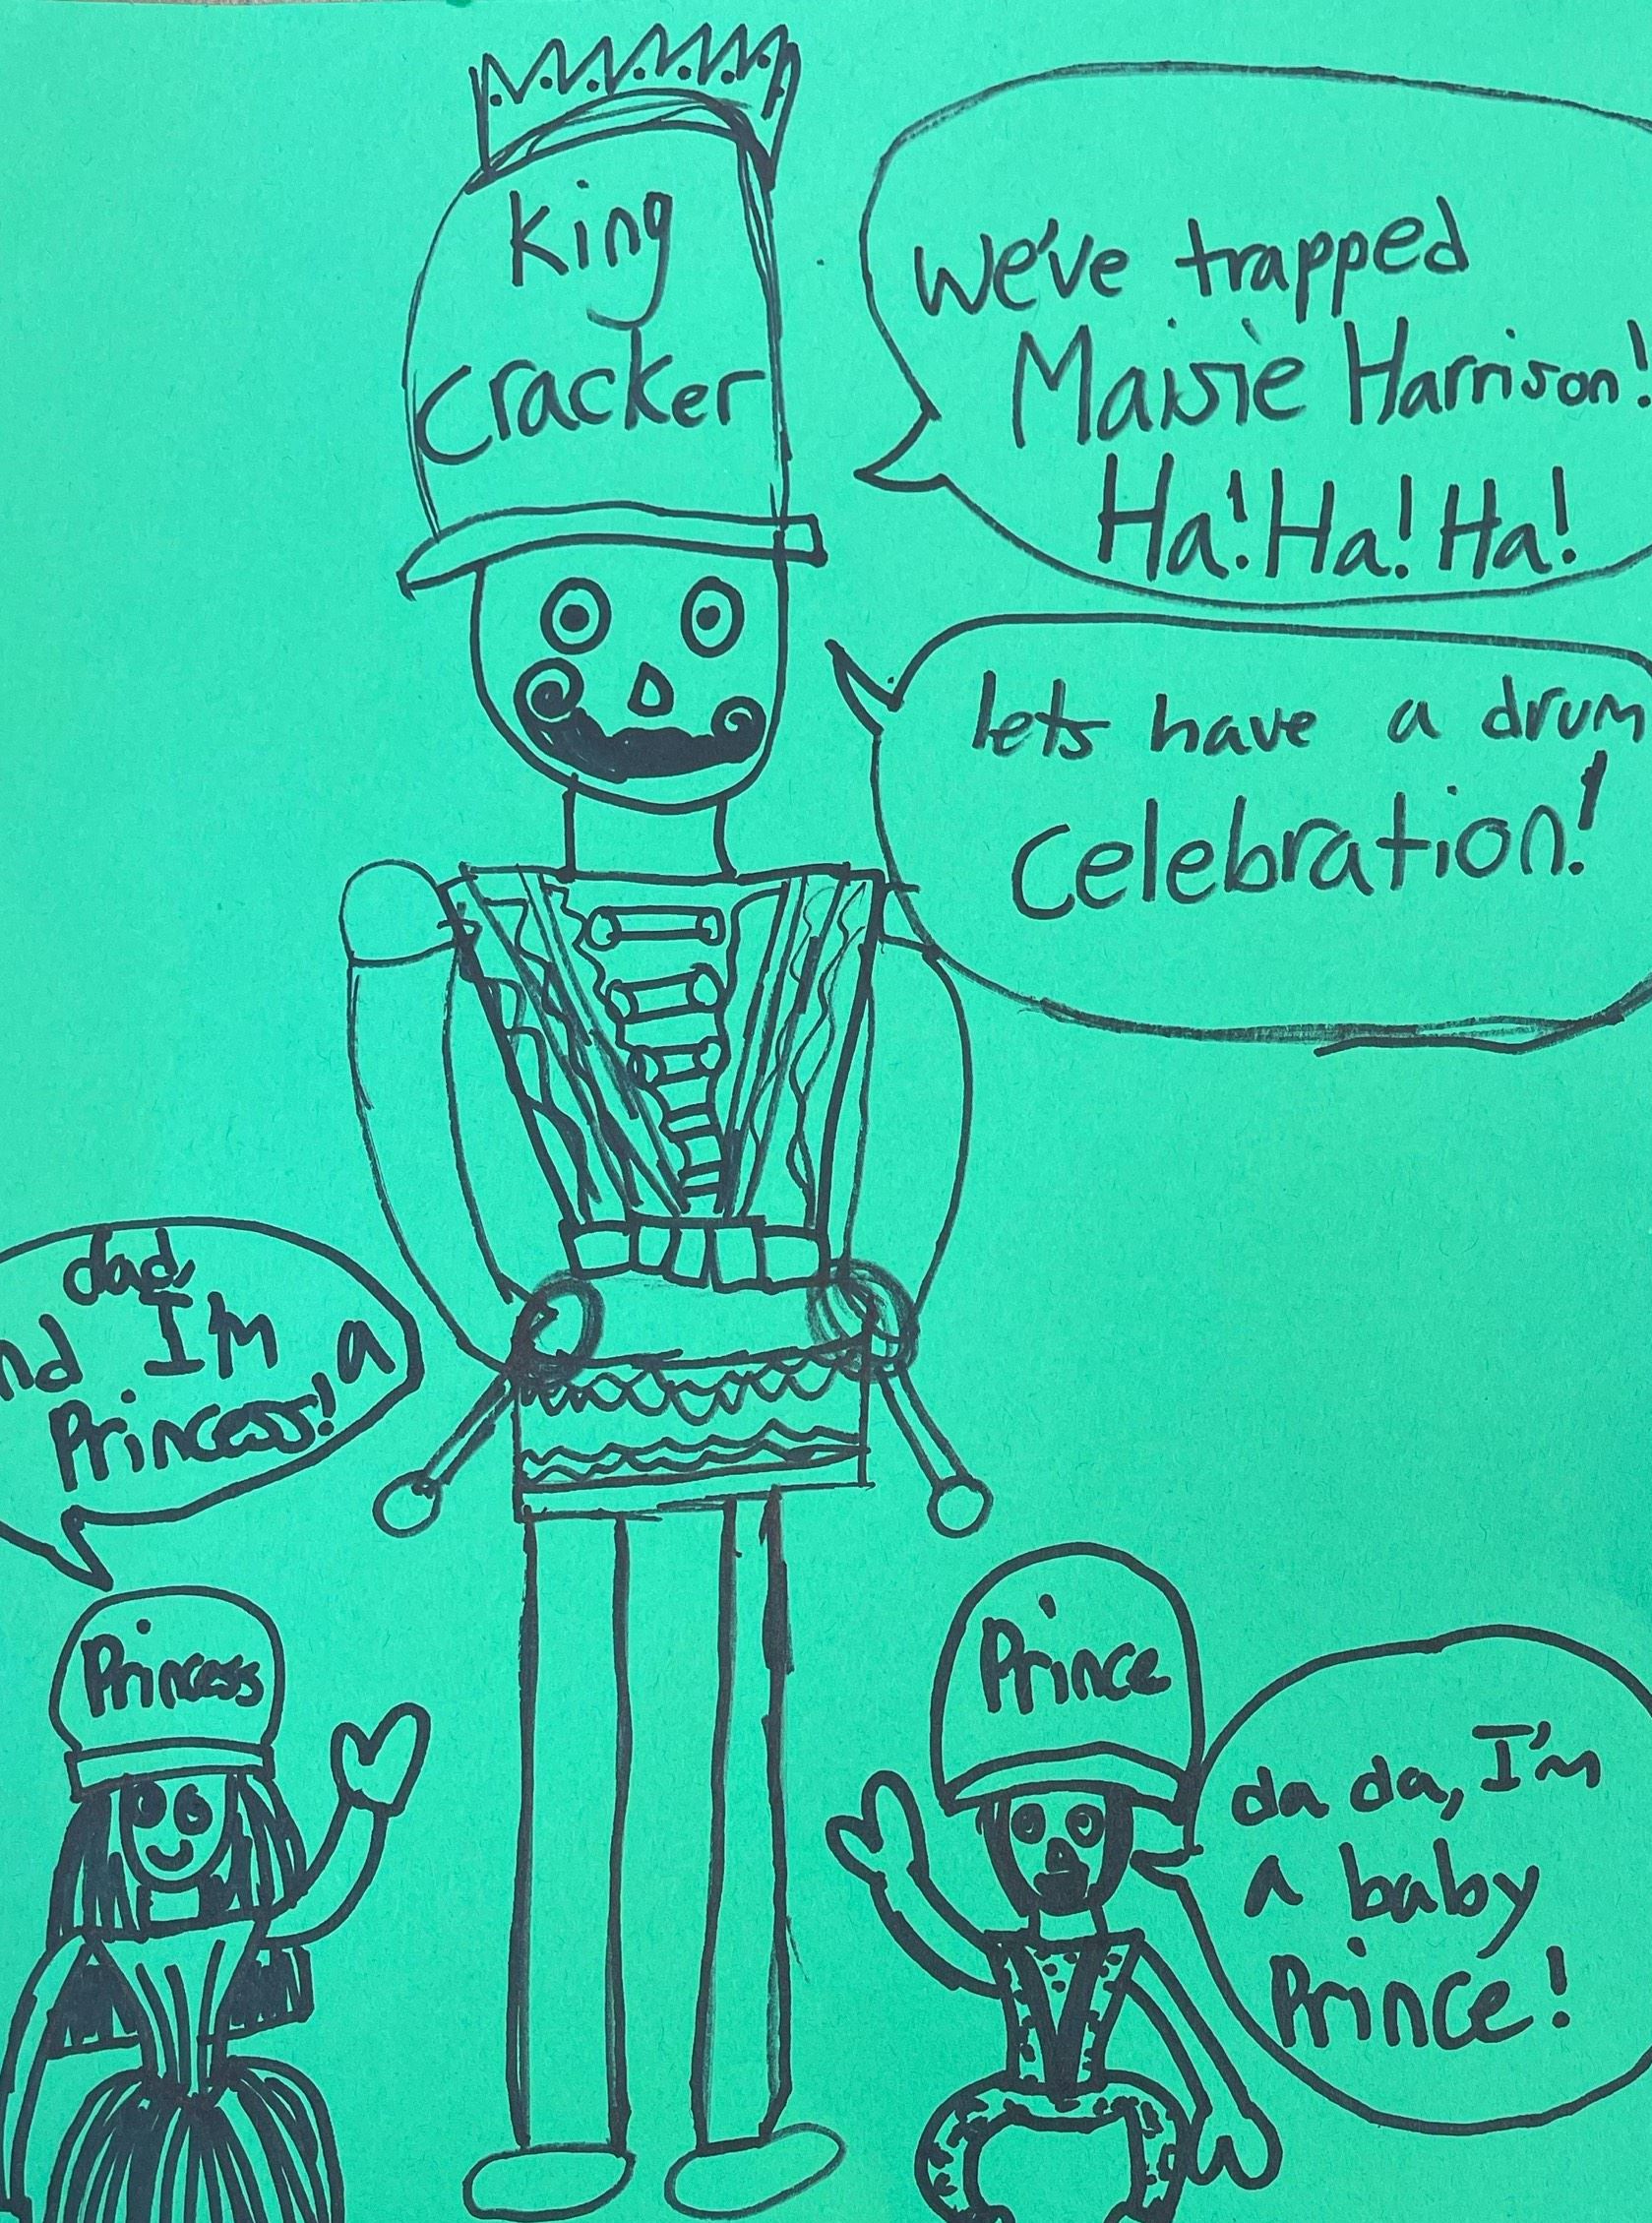 King
Cracker
We've trapped
Maisie Harrison!
Ha! Ha! Ha!
lets have a drum
Celebration!
dad,
nd I'm a
Princess!
Princess
Prince
da da, I'm
a baby
Prince!